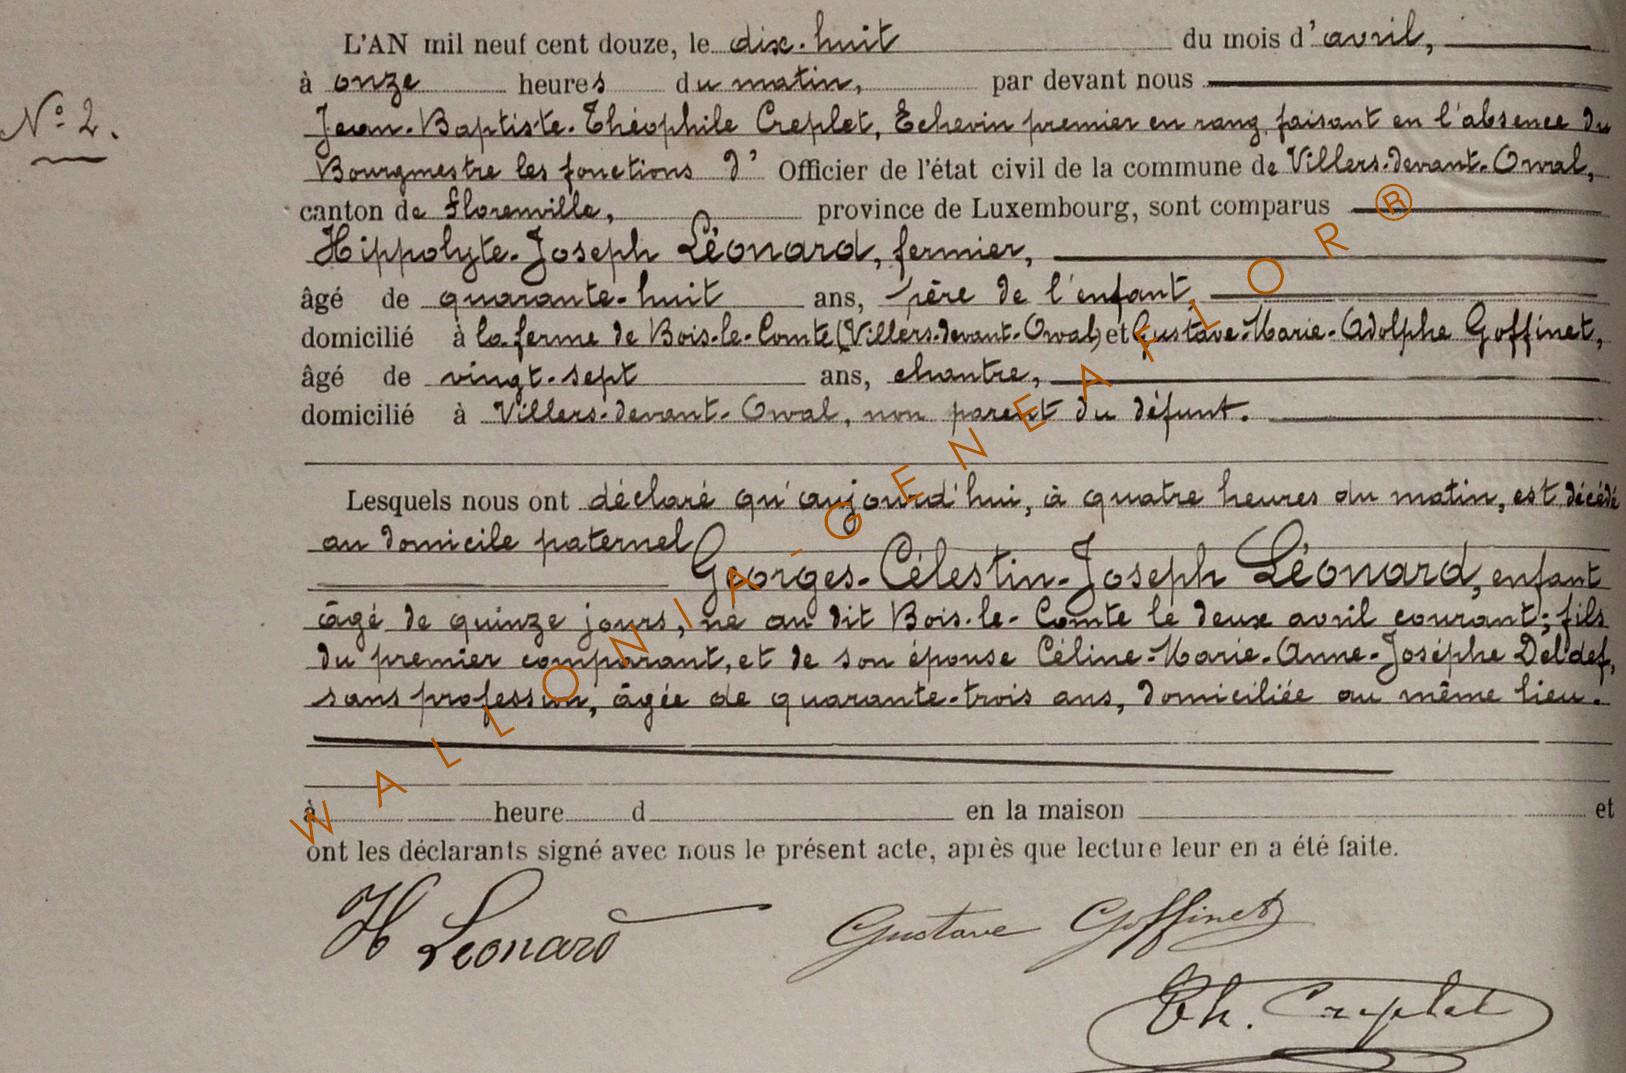 L'AN mil neuf cent douze, le dix-huit du mois d'avril,
à onze heures du matin, par devant nous
N° 2.
Jean-Baptiste-Théophile Creplet, Echevin premier en rang, faisant en l'absence du
Bourgmestre les fonctions d' Officier de l'état civil de la commune de Villers-devant-Orval,
canton de Florenville, province de Luxembourg, sont comparus
Hippolyte-Joseph Léonard, fermier,
âgé de quarante-huit ans, père de l'enfant,
domicilié à la ferme de Bois-le-Comte (Villers-devant-Orval) et Gustave-Marie-Adolphe Goffinet,
âgé de vingt-sept ans, chantre,
domicilié à Villers-devant-Orval, non parent du défunt.
Lesquels nous ont déclaré qu'aujourd'hui, à quatre heures du matin, est décédé
au domicile paternel
Georges-Célestin-Joseph Léonard, enfant
âgé de quinze jours, né au dit Bois-le-Comte le deux avril courant; fils
du premier comparant, et de son épouse Céline-Marie-Anne-Josèphe Deldef,
sans profession, âgée de quarante-trois ans, domiciliée au même lieu.
à heure d en la maison et
ont les déclarants signé avec nous le présent acte, après que lecture leur en a été faite.
H Leonard Gustave Goffinet
Th. Creplet
WALLONIA-GENEAFLOR®